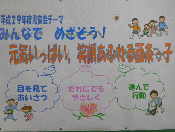 平成29年度児童会テーマ
みんなで めざそう♪
元気いっぱい、笑顔あふれる西条っ子
目を見て
あいさつ
だれにでも
やさしく
進んで
行動